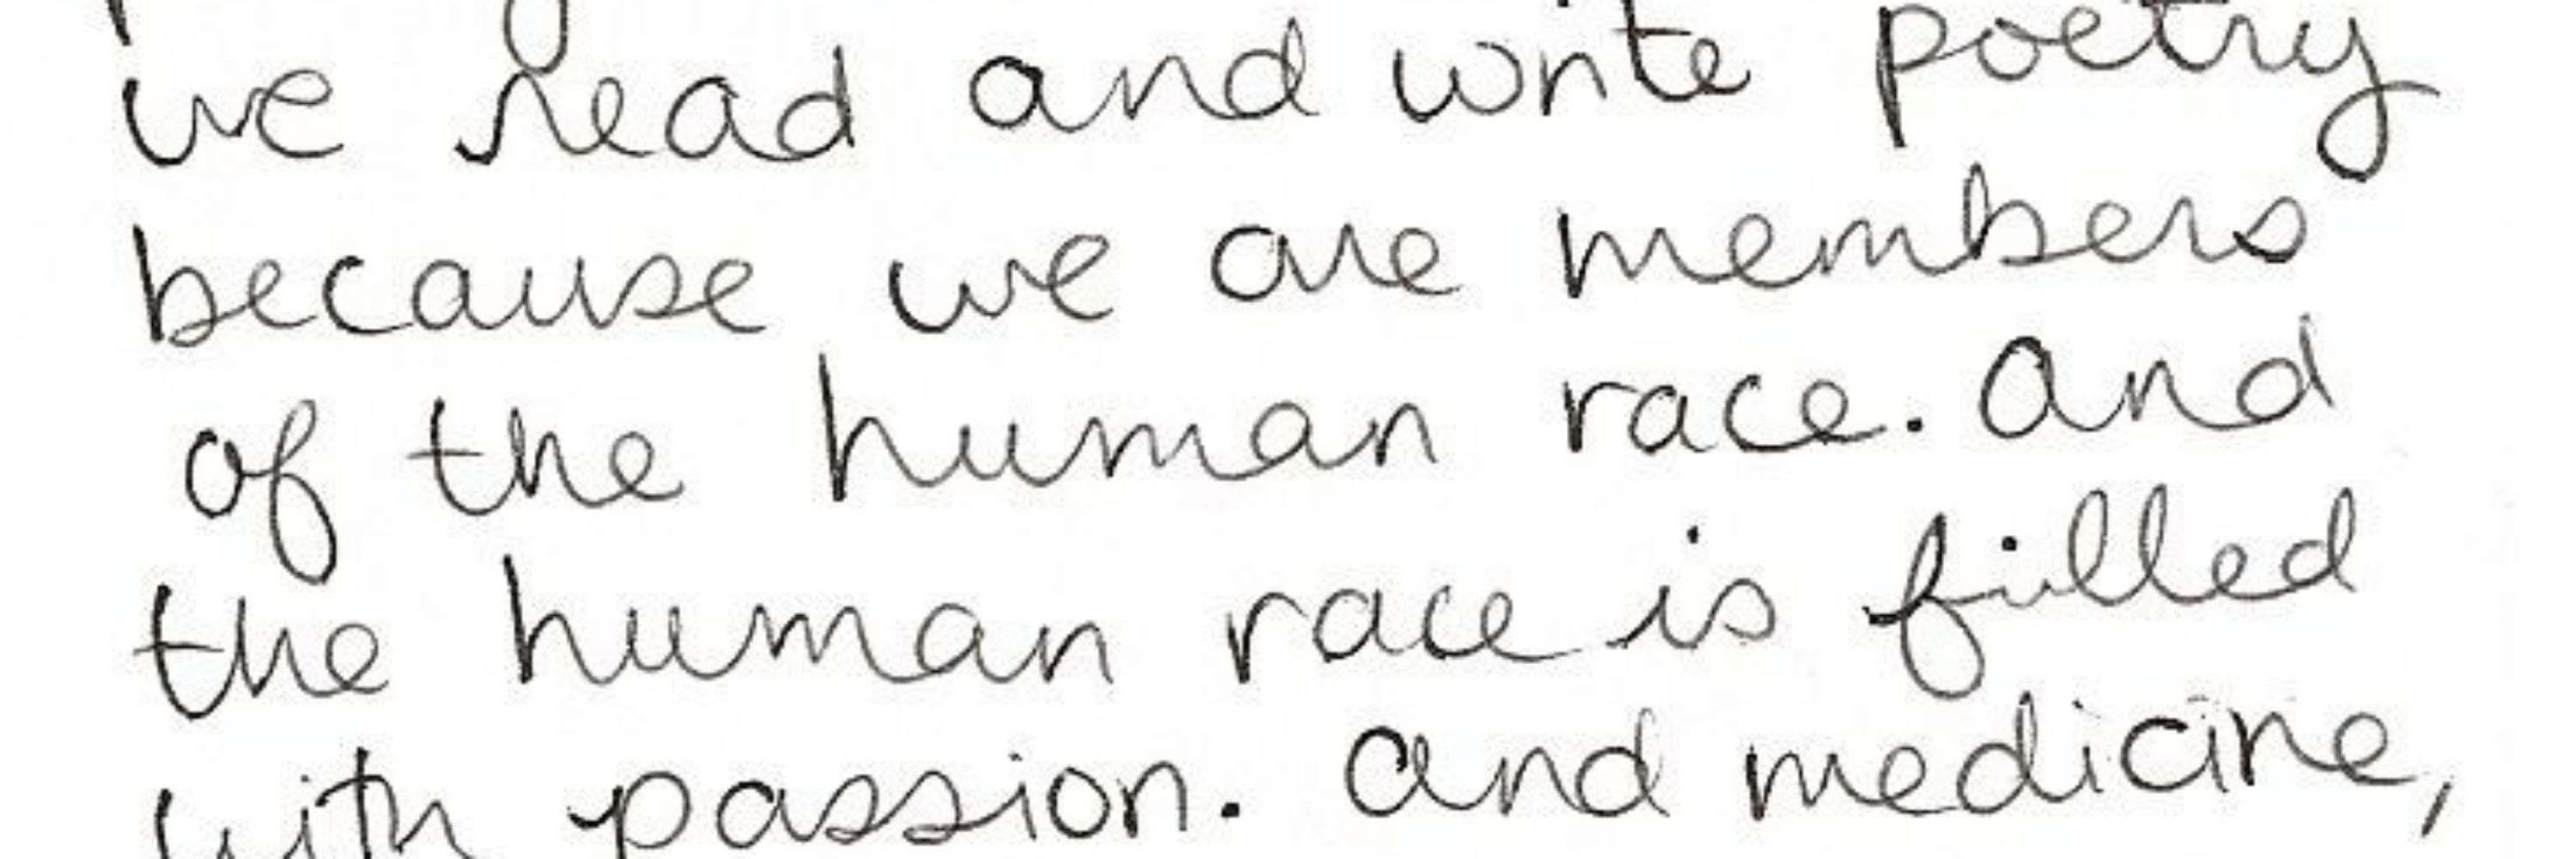 we read and write poetry
because we are members
of the human race. And
the human race is filled
with passion. And medicine,